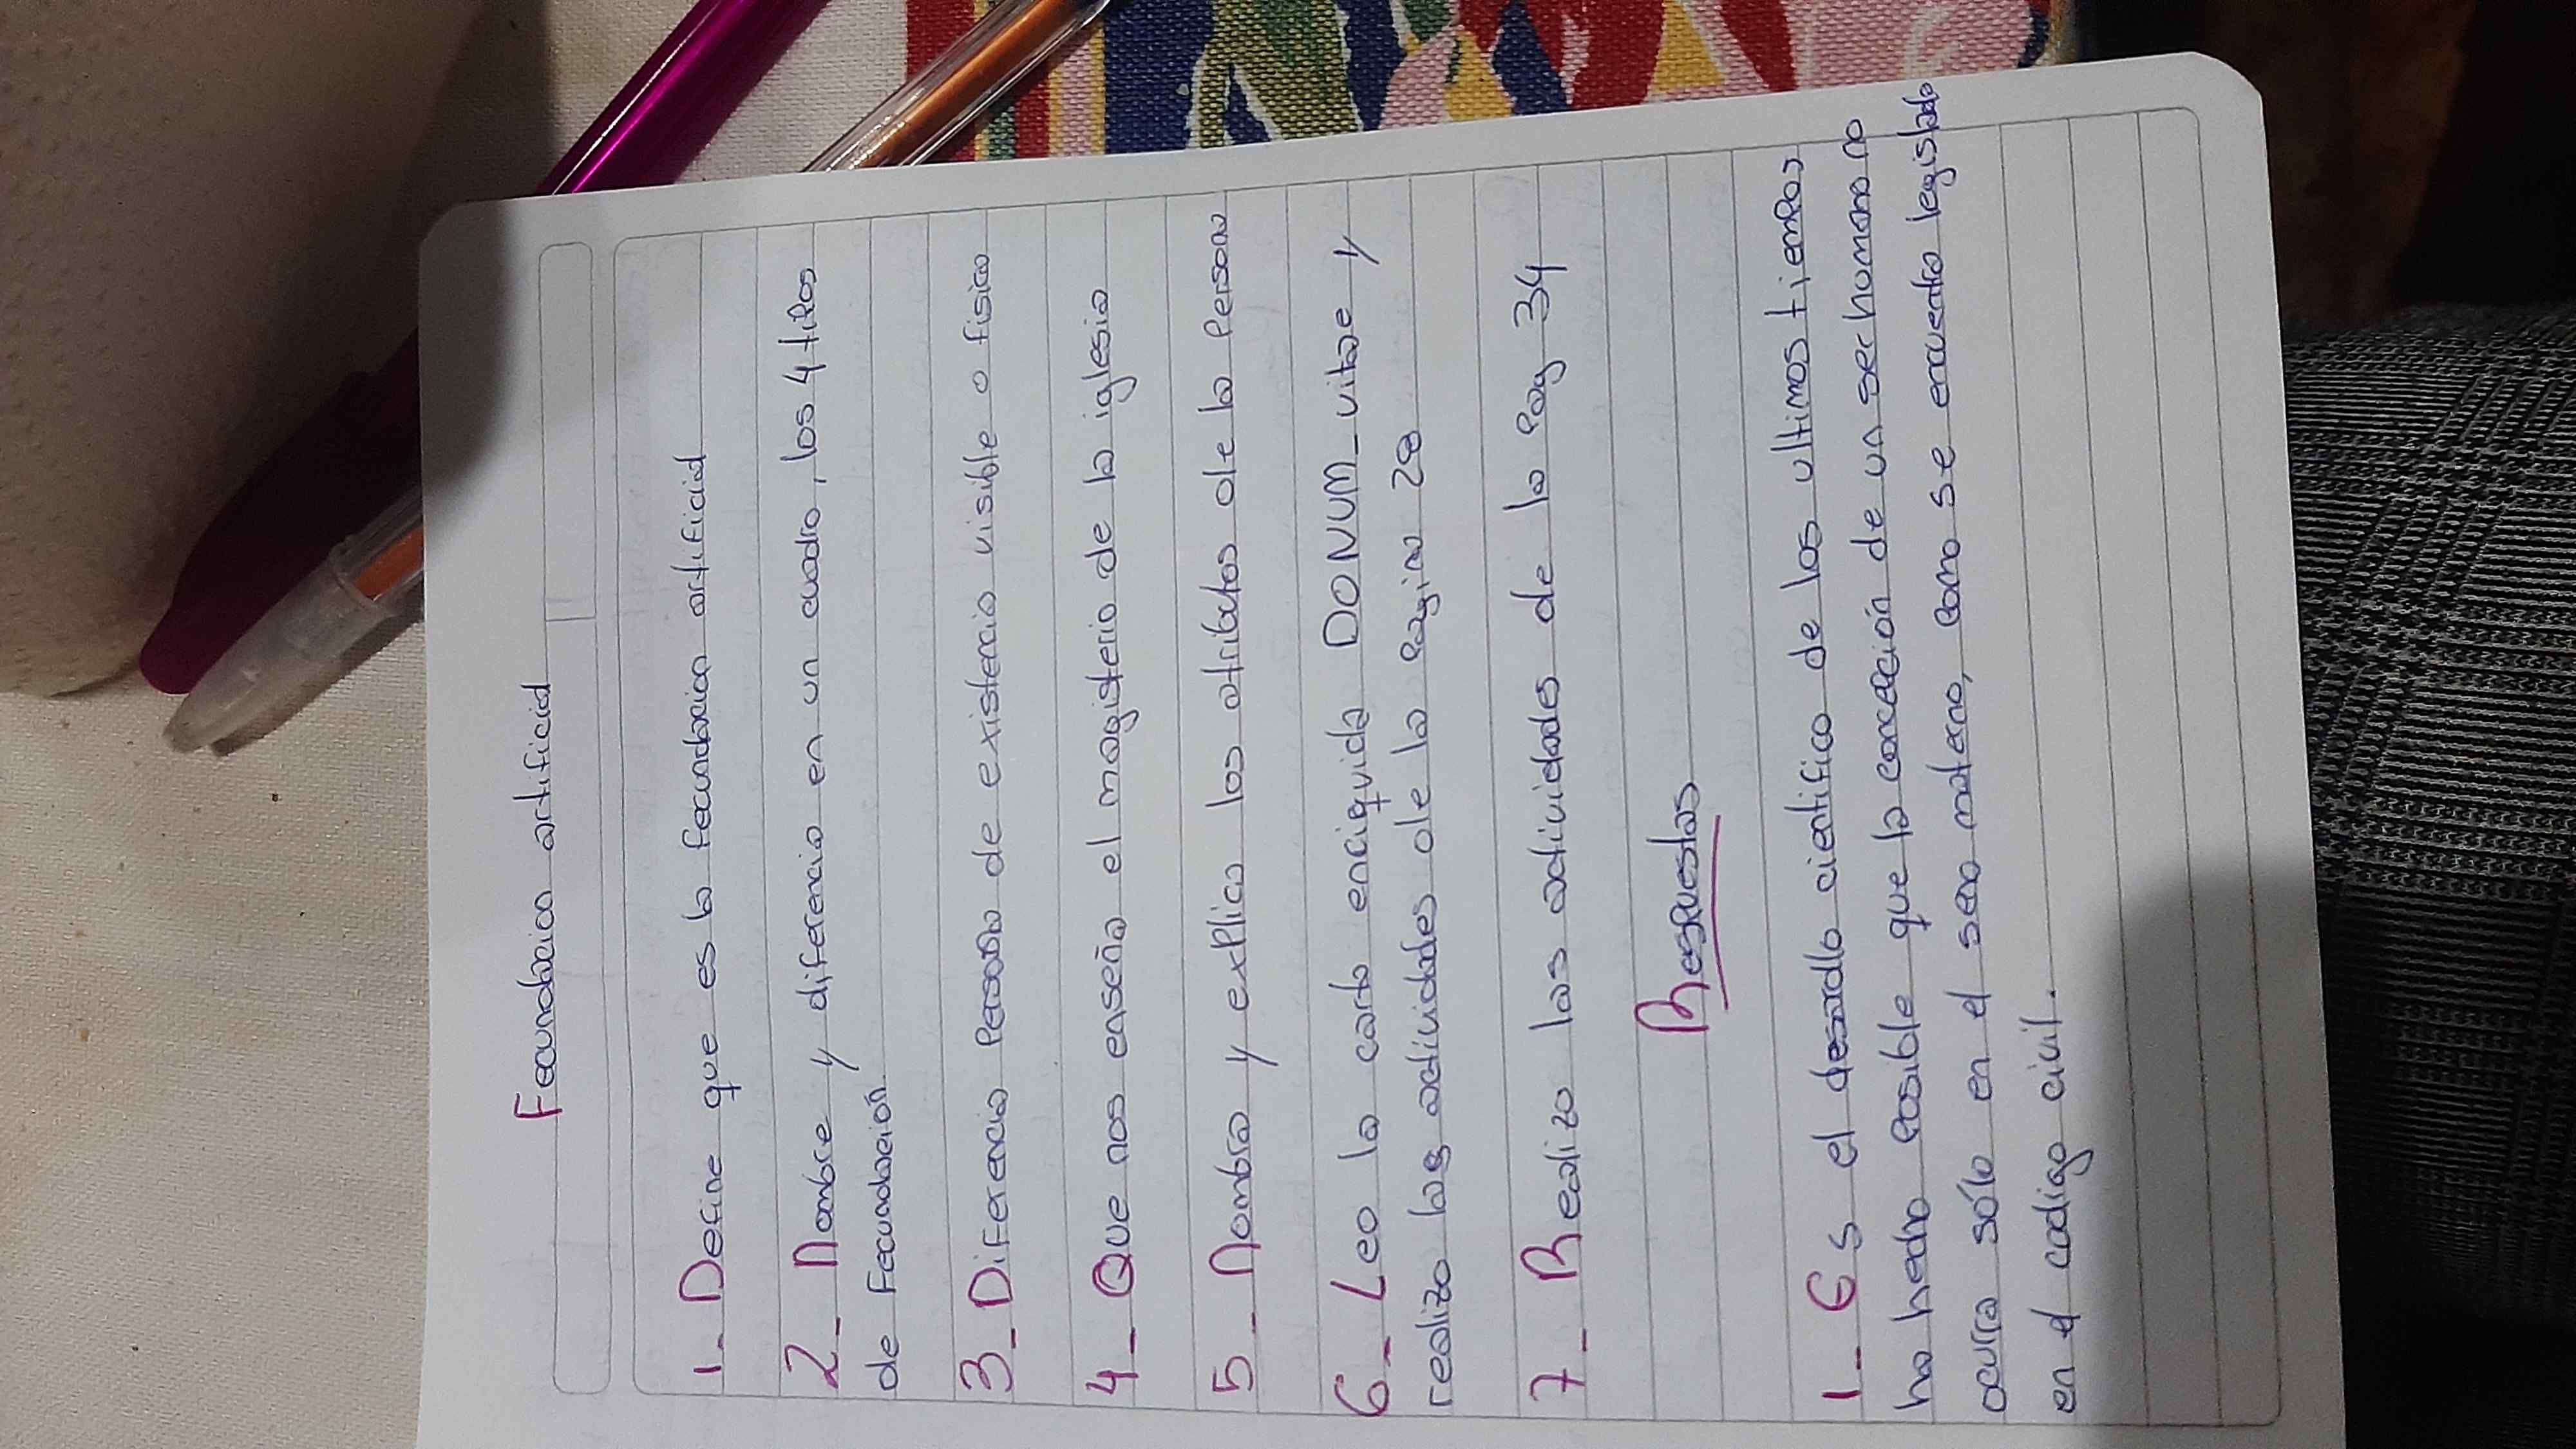 Fecundacion artificial
1_ Define que es la fecundacion artificial
2_ Nombre y diferencia en un cuadro, los 4 tipos
de fecundación
3_ Diferencia persona de existencia visible o fisica
4_ Que nos enseña el magisterio de la iglesia
5_ Nombra y explica los atributos de la persona
6_ Leo la carta enciquida DONUM_vitae y
realizo las actividades de la pagina 28
7_ Realizo las actividades de la pag 34
Respuestas
1_ Es el desarollo cientifico de los ultimos tiempos
ha hecho posible que la concepción de un ser humano no
ocurra sólo en el seno materno, como se encuentra legislado
en el codigo civil.